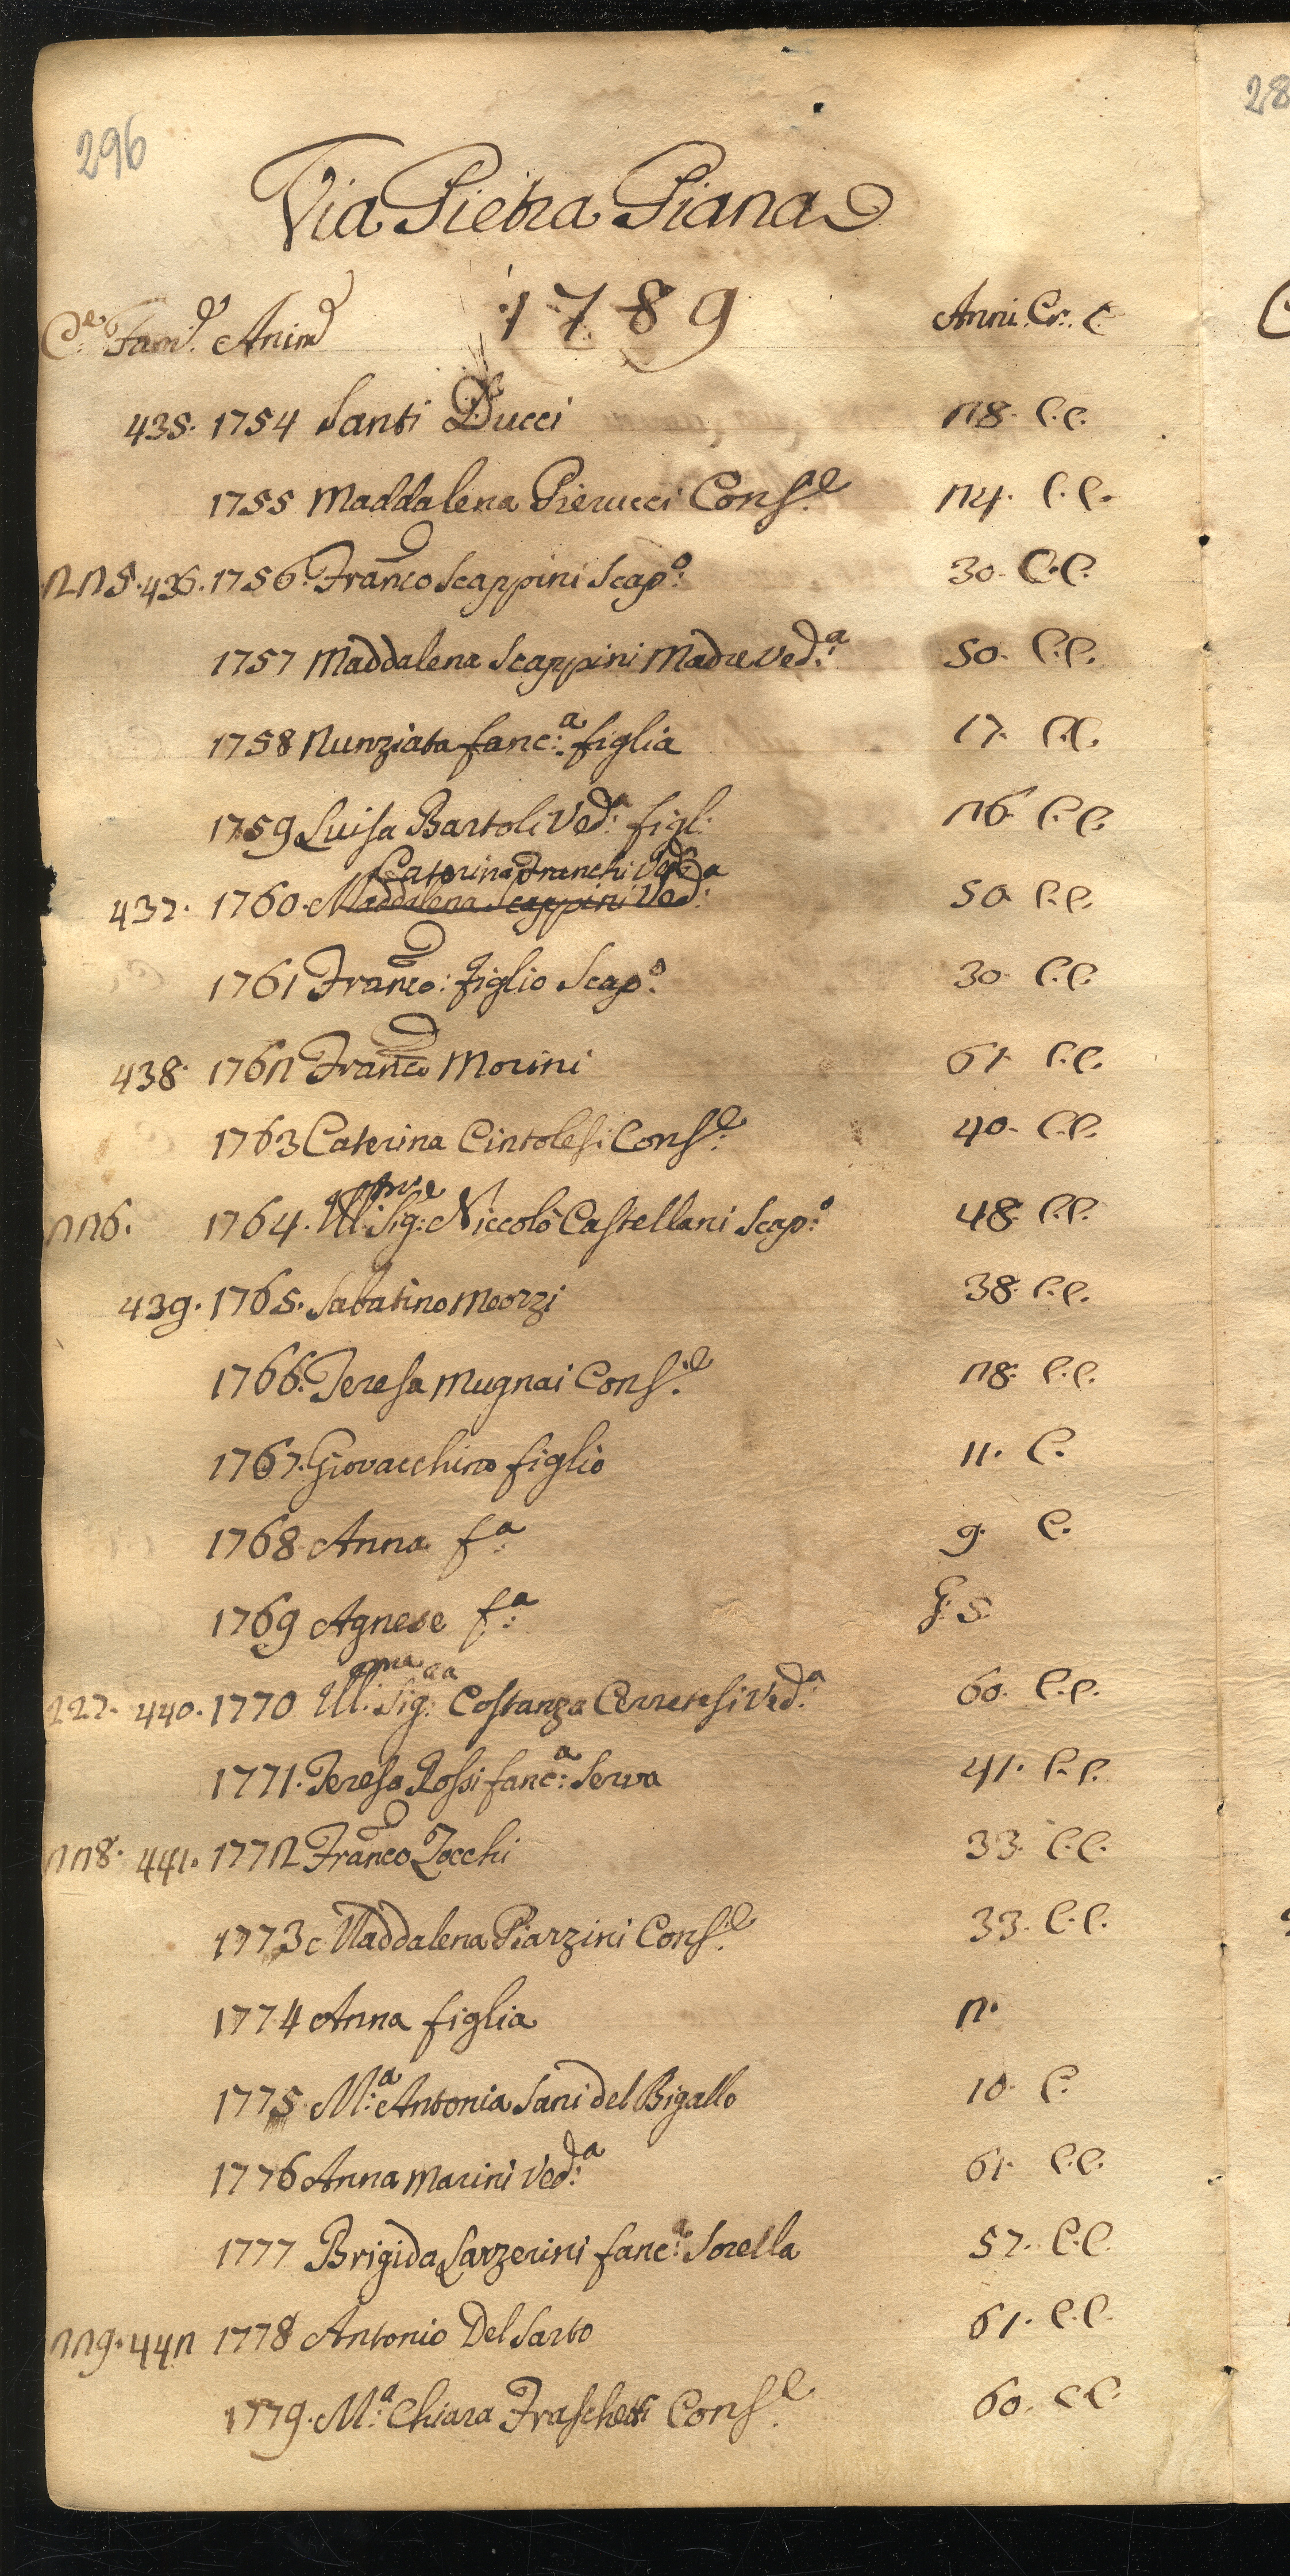 296
28
Via Pietra Piana
1789
C.e Fam.e Anim.e Anni. Cr. C.
435. 1754 Santi Ducci 28. C.C.
1755 Maddalena Pierucci Cons.e 24. C.C.
225. 436. 1756. Fran.co Scappini Scap.o 30. C.C.
1757 Maddalena Scappini Madre Ved.a 50. C.C.
1758 Nunziata fanc.a figlia 17. C.C.
1759 Luisa Bartoli Ved.a figl. 26. C.C.
Caterina Franchi Ved.a
437. 1760. Maddalena Scappini Ved.a 50. C.C.
1761 Fran.co figlio Scap.o 30. C.C.
438. 1762 Fran.co Morini 61. C.C.
1763 Caterina Cintolesi Cons.e 40. C.C.
226. 1764. Ill.mo Sig.e Niccolò Castellani Scap.o 48. C.C.
439. 1765. Sabatino Meozzi 38. C.C.
1766. Teresa Mugnai Cons.e 28. C.C.
1767. Giovacchino figlio 11. C.
1768 Anna f.a 9. C.
1769 Agnese f.a G. 5.
227. 440. 1770 Ill.ma Sig.ra Costanza Cerretesi Ved.a 60. C.C.
1771. Teresa Rossi fanc.a Serva 41. C.C.
228. 441. 1772 Fran.co Zocchi 33. C.C.
1773 Maddalena Piarzini Cons.e 33. C.C.
1774 Anna figlia 2.
1775 M.a Antonia Sani del Bigallo 10. C.
1776 Anna Marini Ved.a 61. C.C.
1777 Brigida Sarzerini fanc.a Sorella 57. C.C.
229. 442 1778 Antonio Del Sarto 61. C.C.
1779. M.a Chiara Fraschetti Cons.e 60. C.C.